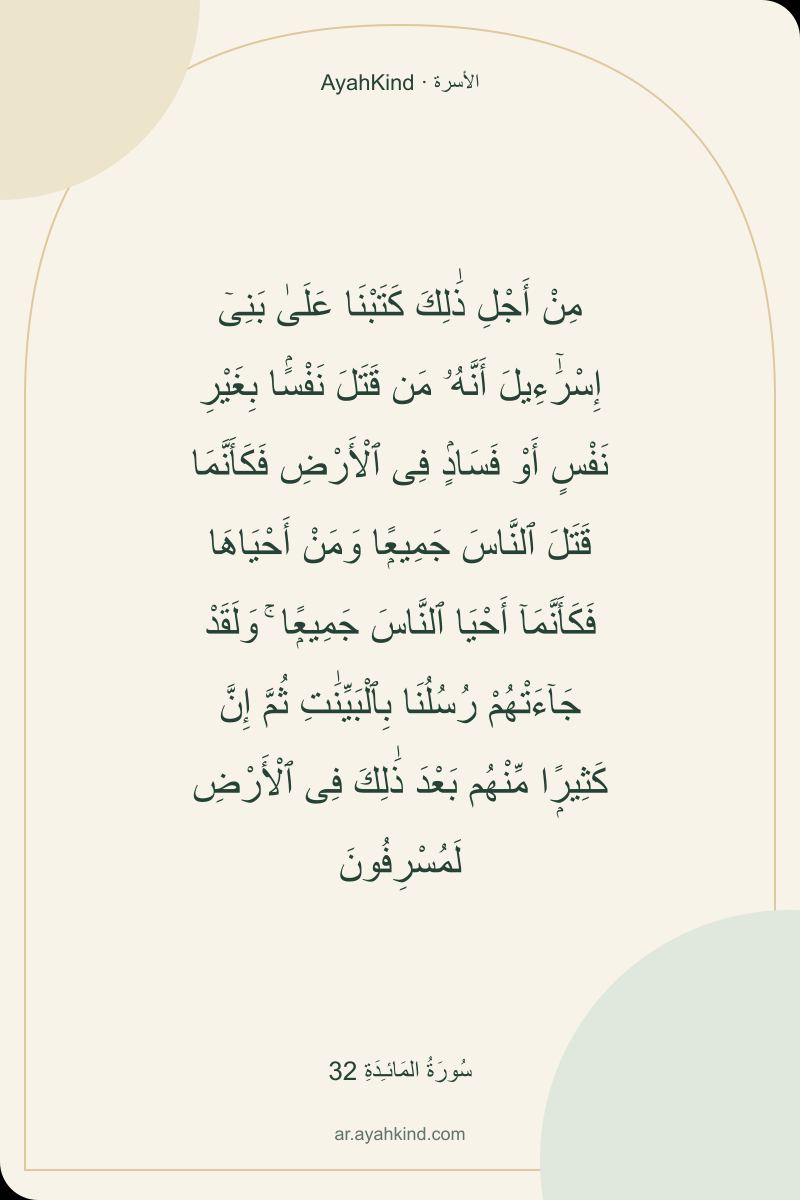 AyahKind · الأسرة
مِنْ أَجْلِ ذَٰلِكَ كَتَبْنَا عَلَىٰ بَنِىٓ
إِسْرَٰٓءِيلَ أَنَّهُۥ مَن قَتَلَ نَفْسًۢا بِغَيْرِ
نَفْسٍ أَوْ فَسَادٍۢ فِى ٱلْأَرْضِ فَكَأَنَّمَا
قَتَلَ ٱلنَّاسَ جَمِيعًۭا وَمَنْ أَحْيَاهَا
فَكَأَنَّمَآ أَحْيَا ٱلنَّاسَ جَمِيعًۭا ۚ وَلَقَدْ
جَآءَتْهُمْ رُسُلُنَا بِٱلْبَيِّنَٰتِ ثُمَّ إِنَّ
كَثِيرًۭا مِّنْهُم بَعْدَ ذَٰلِكَ فِى ٱلْأَرْضِ
لَمُسْرِفُونَ
سُورَةُ المَائـِدَةِ 32
ar.ayahkind.com